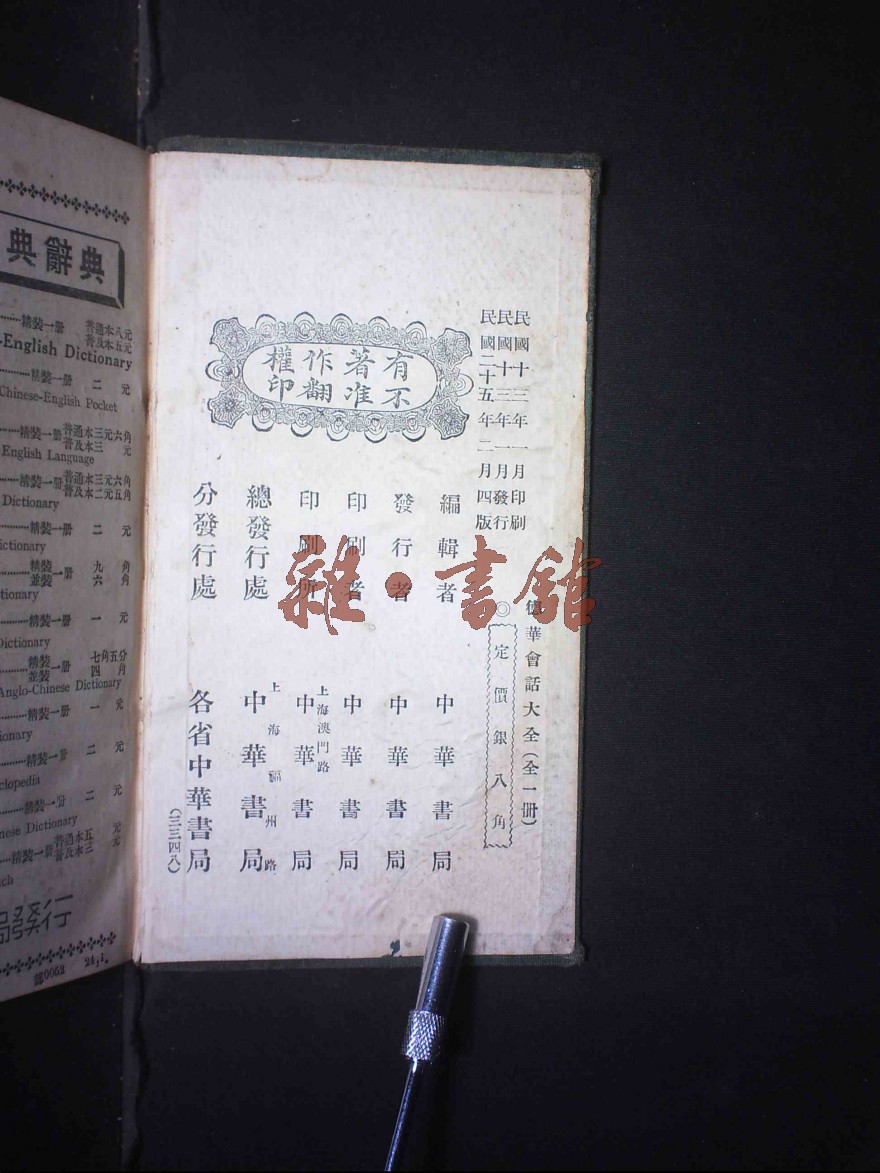 民國十三年一月印刷
民國十三年一月發行
民國二十五年二月四版
德華會話大全(全一冊)
◎定價銀八角
有不著准作翻權印
編輯者 中華書局
發行者 中華書局
印刷者 中華書局
印刷所 上海澳門路 中華書局
總發行處 上海福州路 中華書局
分發行處 各省中華書局
(三三四八)
雜·書館
典辭典
精裝一册 普通本八元 普及本五元
-English Dictionary
精裝一册 二元
Chinese-English Pocket
精裝一册 普通本三元六角 普及本三元
English Language
精裝一册 普通本三元六角 普及本二元五角
Dictionary
精裝一册 二元
ictionary
精裝 並裝 一册 九角 六角
tionary
精裝一册 一元
Dictionary
精裝 並裝 一册 七角五分 四角
Anglo-Chinese Dictionary
精裝一册 一元
ionary
精裝一册 二元
clopedia
精裝一册 二元
nese Dictionary
精裝一册 普通本五元 普及本三元
ch
24,1,